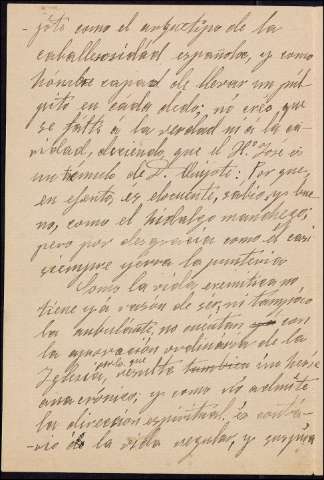 -jote como el arquetipo de la
caballerosidad española, y como
hombre capaz de llevar un púl-
pito en cada dedo: no creo que
se falte á la verdad ni á la ca-
ridad, diciendo, que el P. José es
un émulo de D. Quijote: Porque,
en efecto, és elocuente, sabio, y bue-
no, como el hidalgo manchego;
pero por desgracia como él casi
siempre yerra la puntería
Como la vida eremítica no
tiene yá razón de ser, ni tampoco
la ambulante, no cuentan con
la aprovación ordinaria de la
Iglesia, por lo que resulta tambien un héroe
anacrónico; y como nó admite
la dirección espiritual, és contra-
rio de la vida regular, y